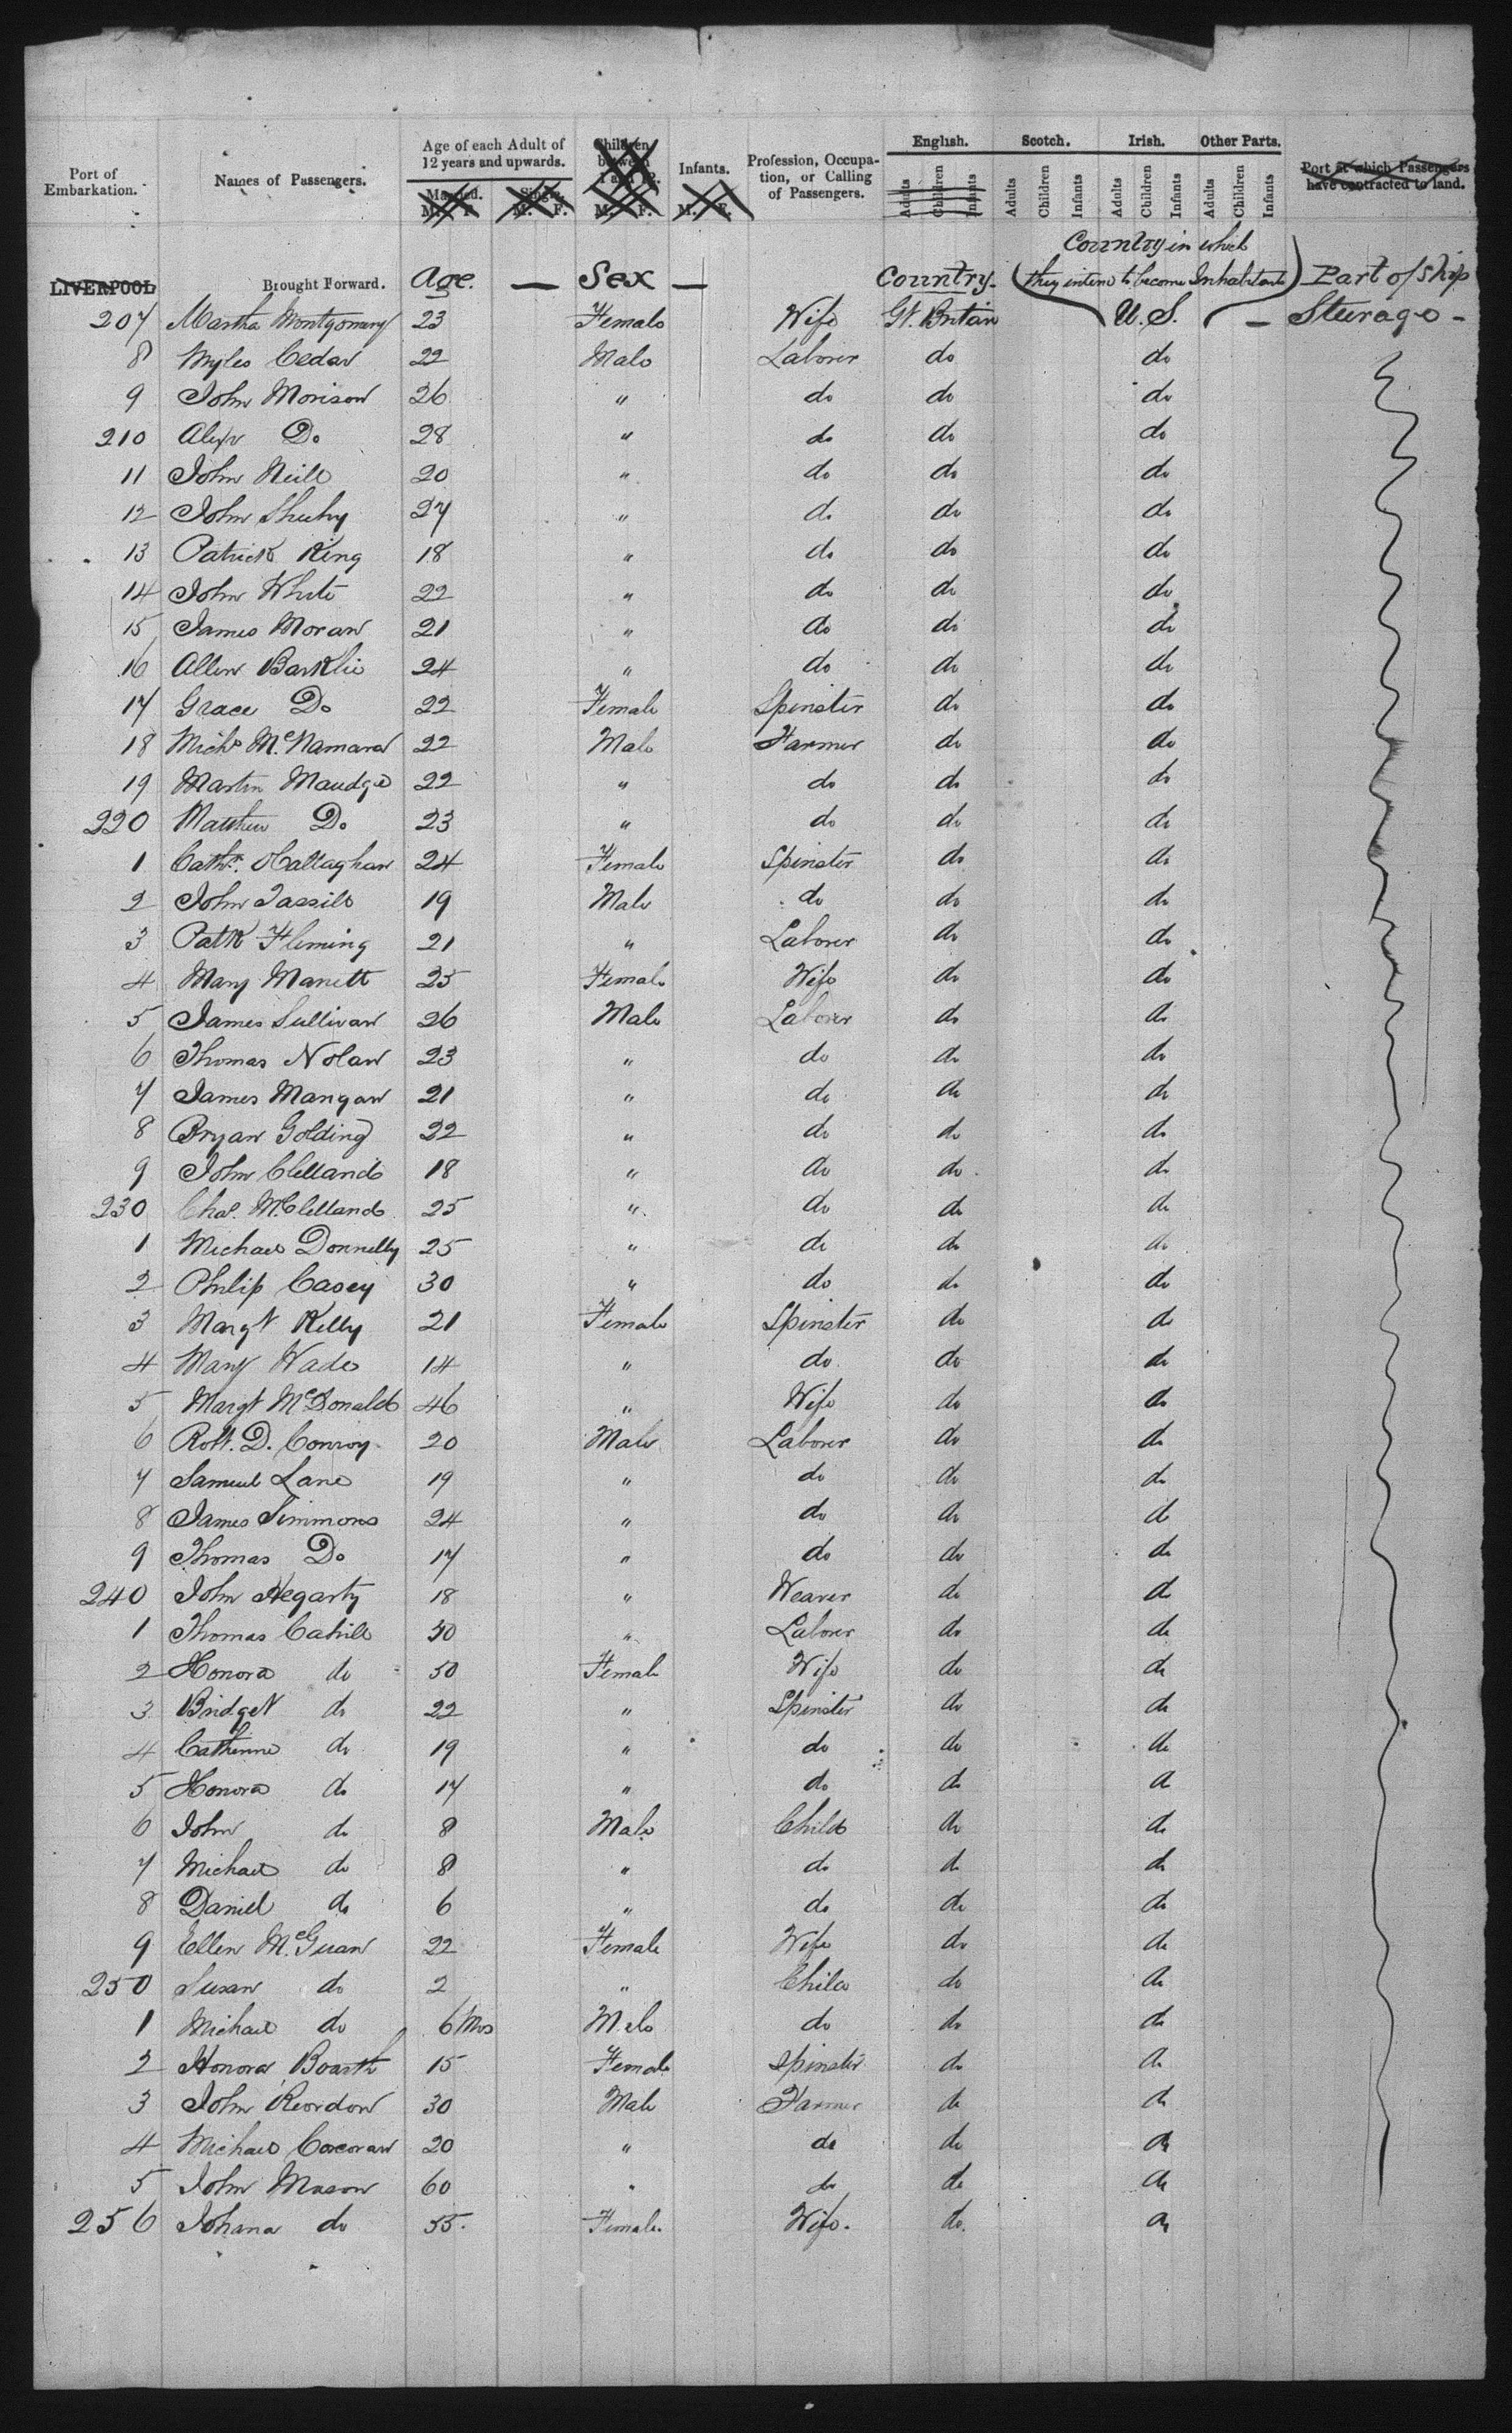 Port of Embarkation. Names of Passengers. Age of each Adult of 12 years and upwards. Children between 1 and 12. Infants. Profession, Occupation, or Calling of Passengers. English. Scotch. Irish. Other Parts. Port at which Passengers have contracted to land.
Married. Single.
M. F. M. F. M. F. M. F. Adults Children Infants Adults Children Infants Adults Children Infants Adults Children Infants
LIVERPOOL Brought Forward. Age. — Sex — Country. (Country in which they intend to become Inhabitants) Part of Ship
207 Martha Montgomery 23 Female Wife Gt. Britain U.S. — Steerage -
8 Myles Cedar 22 Male Laborer do do
9 John Morison 26 " do do do
210 Alexr Do 28 " do do do
11 John Neill 20 " do do do
12 John Sheehy 27 " do do do
13 Patrick King 18 " do do do
14 John White 22 " do do do
15 James Moran 21 " do do do
16 Allen Barklie 24 " do do do
17 Grace Do 22 Female Spinster do do
18 Michl McNamara 22 Male Farmer do do
19 Martin Maudge 22 " do do do
220 Matthew Do 23 " do do do
1 Cathe. OCallaghan 24 Female Spinster do do
2 John 19 Male do do do
3 Patk Fleming 21 " Laborer do do
4 Mary Manett 25 Female Wife do do
5 James Sullivan 26 Male Laborer do do
6 Thomas Nolan 23 " do do do
7 James Mangan 21 " do do do
8 Bryan Golding 22 " do do do
9 John Clelland 18 " do do do
230 Chas. McClelland 25 " do do do
1 Michael Donnelly 25 " do do do
2 Philip Casey 30 " do do do
3 Margt Kelly 21 Female Spinster do do
4 Mary Wade 14 " do do do
5 Margt McDonald 46 " Wife do do
6 Robt. D. Conroy 20 Male Laborer do do
7 Samuel Lane 19 " do do do
8 James Simmons 24 " do do do
9 Thomas Do 17 " do do do
240 John Hegarty 18 " Weaver do do
1 Thomas Cahill 50 " Laborer do do
2 Honora do 50 Female Wife do do
3 Bridget do 22 " Spinster do do
4 Catherine do 19 " do do do
5 Honora do 17 " do do do
6 John do 8 Male Child do do
7 Michael do 8 " do do do
8 Daniel do 6 " do do do
9 Ellen McGuan 22 Female Wife do do
250 Susan do 2 " Child do do
1 Michael do 6 Mos Male do do do
2 Honora 15 Female Spinster do do
3 John Reordon 30 Male Farmer do do
4 Michael Corcoran 20 " do do do
5 John Mason 60 " do do do
256 Johana do 55. Female. Wife. do. do